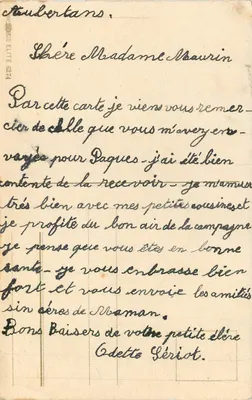 Aubertans.
Chére Madame Maurin
Par cette carte je viens vous remer-
cier de celle que vous m'avez en-
voyée pour Paques - j'ai été bien
contente de la recevoir - je m'amuse
trés bien avec mes petites cousines et
je profite du bon air de la campagne
je pense que vous êtes en bonne
sante - je vous embrasse bien
fort et vous envoie les amitiés
sin céres de Maman.
Bons Baisers de votre petite élére
Odette Sériot.